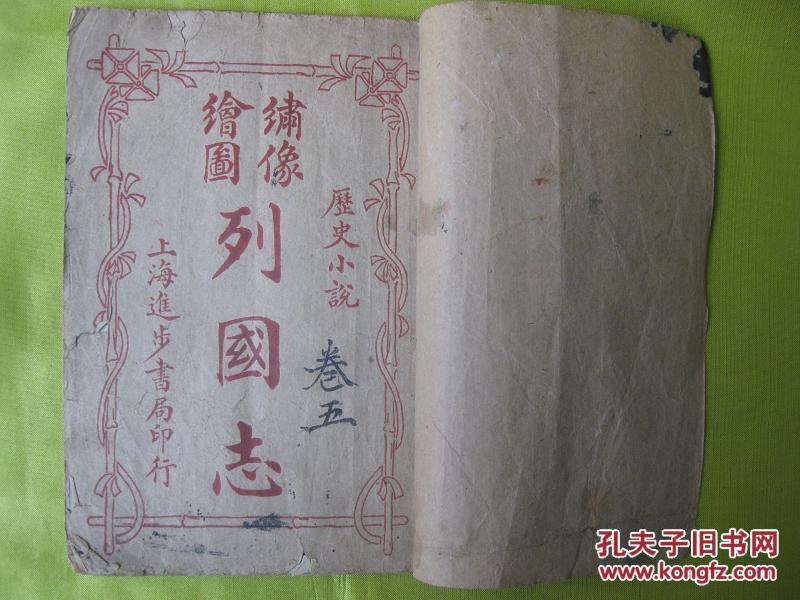 歷史小說
繡像
繪圖
列國志
卷五
上海進步書局印行
孔夫子旧书网
www.kongfz.com